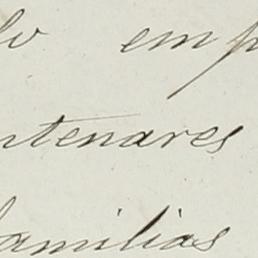 lo emp
ntenares
familias